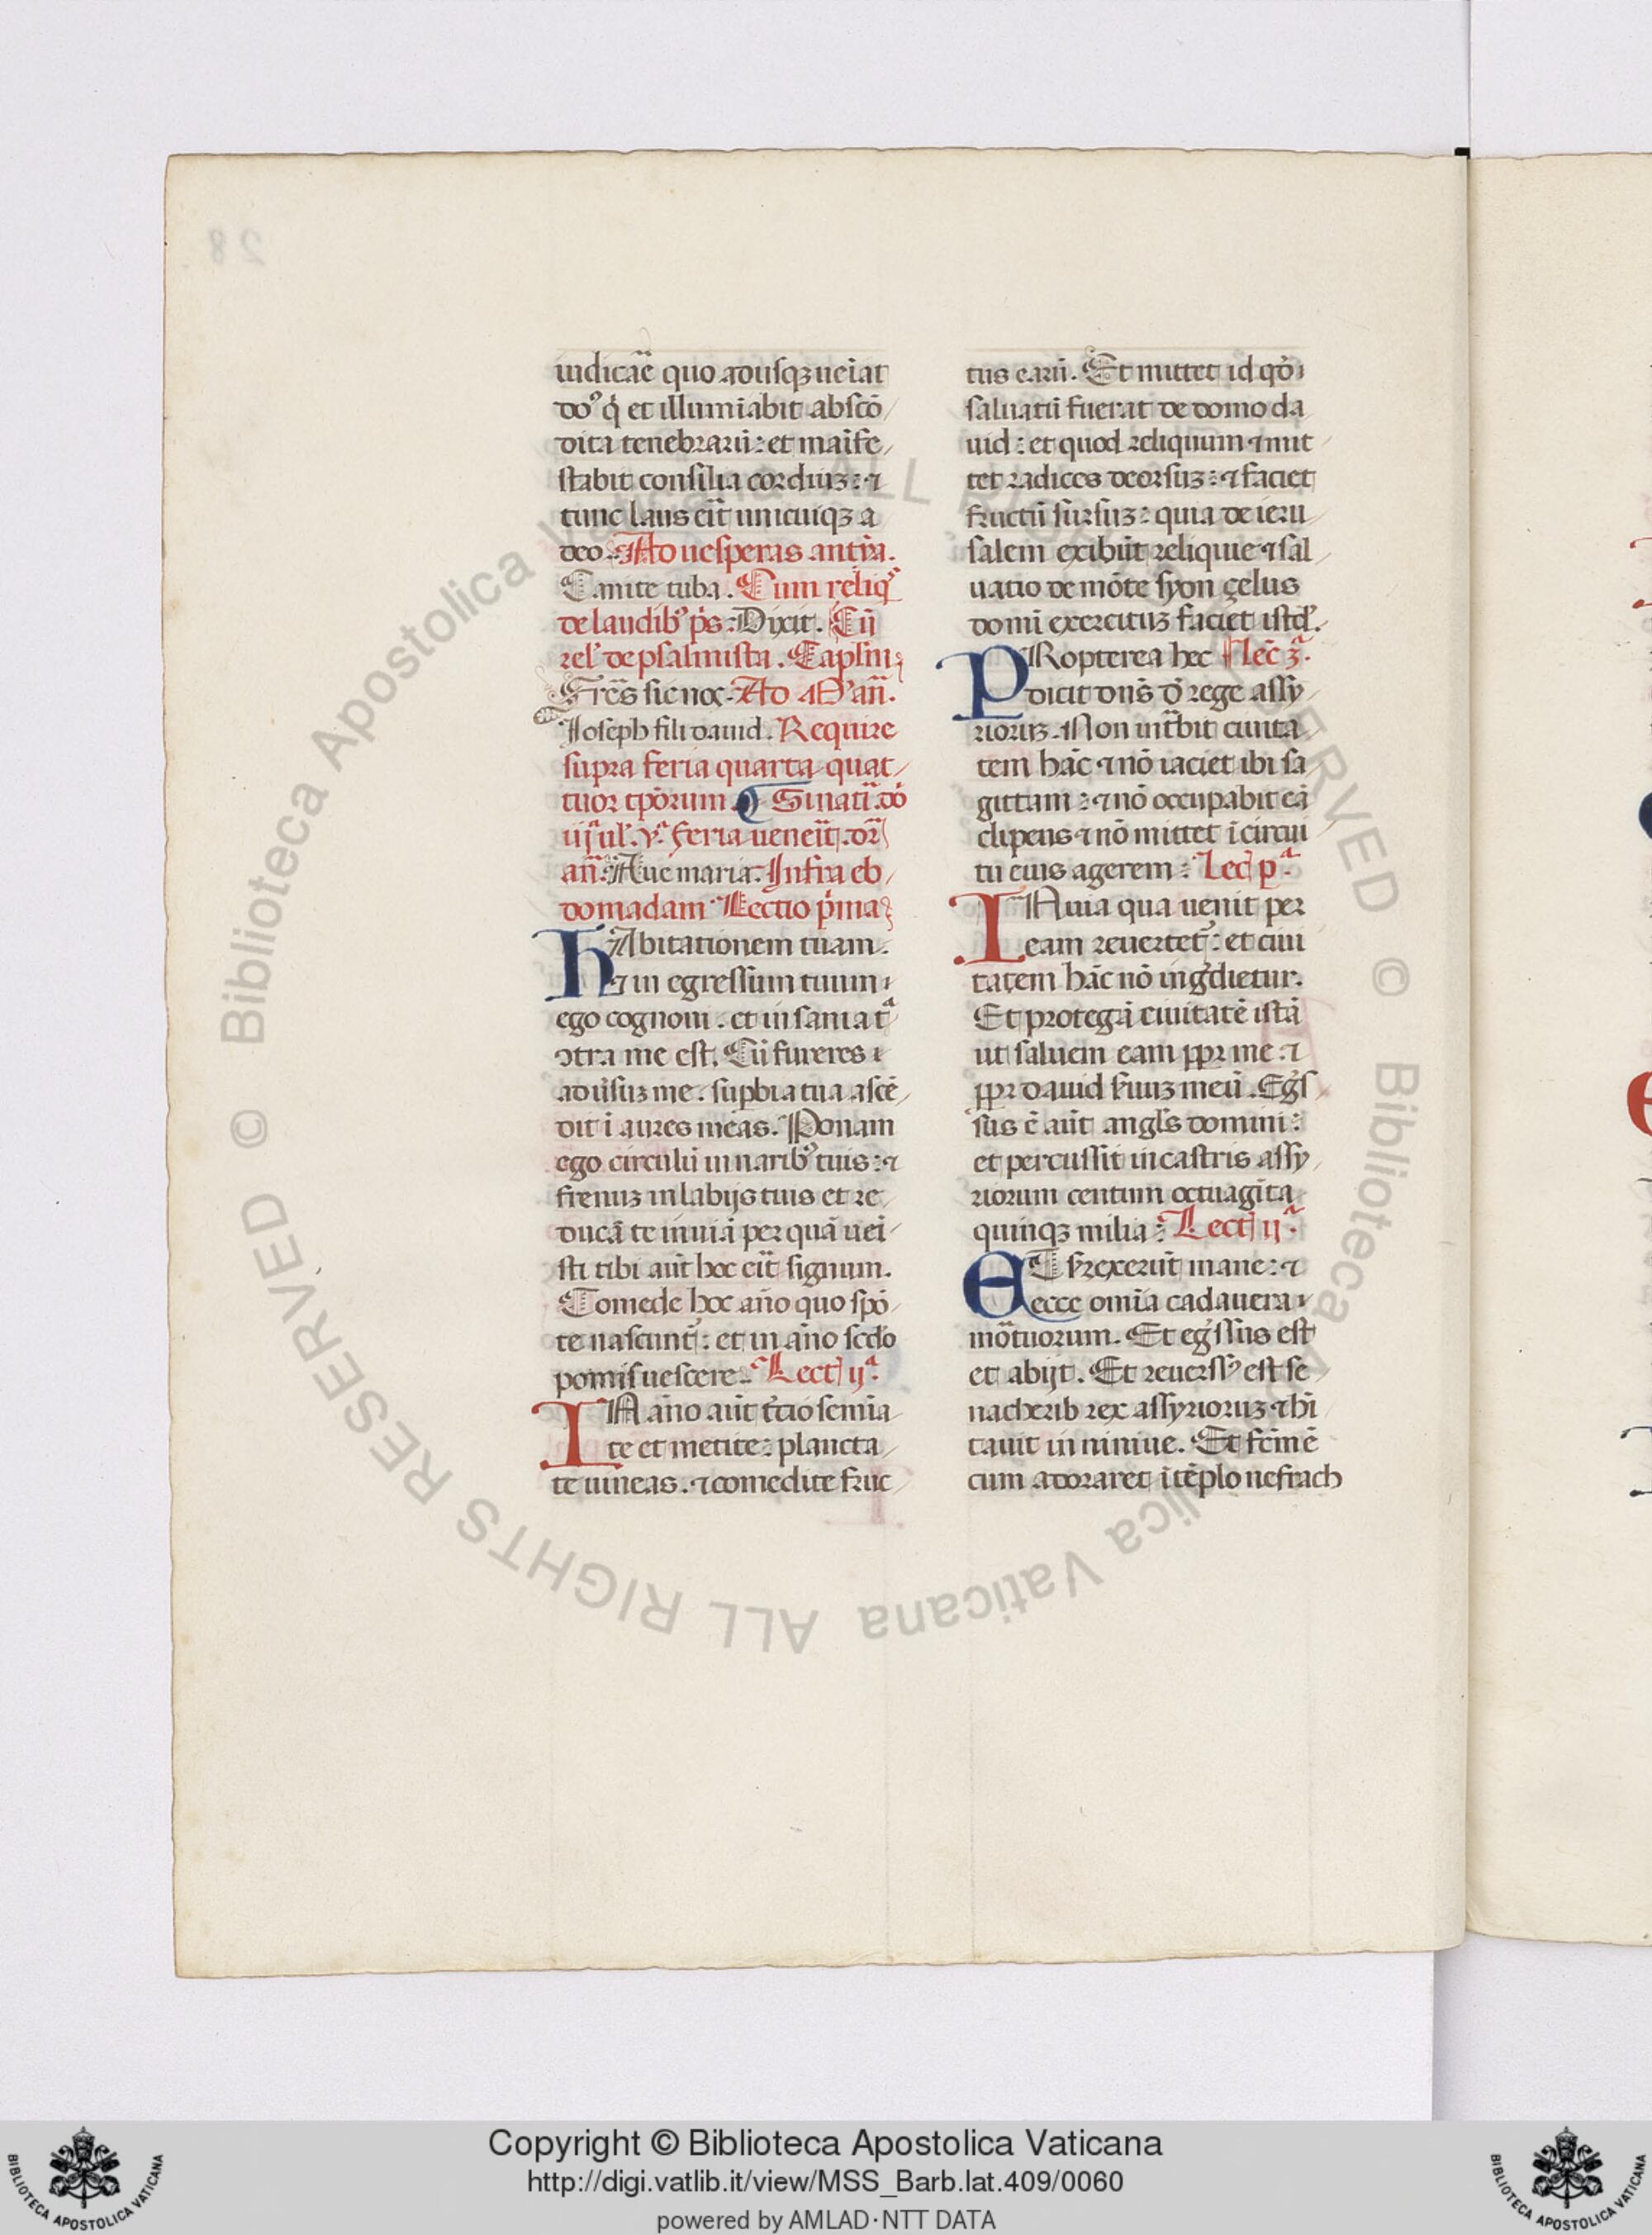 iudicar̃e quo adusqꝫ ueĩat
do⁹ q̇ et illumĩabit abscõ
dita tenebrarũ: et maĩfe
stabit consilia cordiuꝫ: ⁊
tunc laus eĩt unicuiqꝫ a
deo. Ad uesperas antĩa.
Canite tuba. Cum reliq̃s
de laudib⁹ p̃s: Dixit. Cũ
rel̃ de psalmista. Capl̃m
Fr̃es sic nox. Ad M̃ añ.
Ioseph fili dauid. Require
supra feria quarta quat
tuor tp̃orum. ¶ Si natiᷓ. dõ
iijᵃ ul̃. vᵃ. feria ueneĩt. dr̃
añ. Aue maria. Infra eb
domadam Lectio p̃ma
HAbitationem tuam.
⁊ in egressum tuum
ego cognoui. et insania tᵃ
ↄtra me est. Cũ fureres
aduĩsuꝫ me. suꝑbia tua ascẽ
dit ĩ aures meas. Ponam
ego circulũ in narib⁹ tuis: ⁊
frenuꝫ in labijs tuis et re
ducã te in uiã per quã uei
sti tibi aũt hoc eĩt signum.
Comede hoc año quo spõ
te nascunt̃: et in año scd̃o
pomis uescere. Lect̃ ijᵃ.
IN año aũt t̃cio semĩa
te et metite: plancta
te uineas. ⁊ comedite fruc
tus earũ. Et mittet id qď
saluatũ fuerat de domo da
uid: et quod reliquum ⁊ mit
tet radices deorsuꝫ: ⁊ faciet
fructũ sursuꝫ: quia de ieru
salem exibũt reliquie ⁊ sal
uatio de mõte syon çelus
domĩ exercituꝫ faciet istď.
PRopterea hec Lec̃ ꝫᵃ.
dicit dñs d̃ rege assy
rioruꝫ. Non intᷓbit ciuita
tem hãc ⁊ nõ iaciet ibi sa
gittam: ⁊ nõ occupabit eã
clipeus ⁊ nõ mittet ĩ circui
tu eius agerem: Lec̃ pᵃ.
IN uia qua uenit per
eam reuertet̃: et ciui
tatem hãc nõ ingᷓdietur.
Et protegã ciuitatẽ istã
ut saluem eam ꝓpt̃ me: ⁊
ꝓpt̃ dauid ſ̃uuꝫ meũ. Egs̃
sus ẽ aũt angl̃s domini:
et percussit in castris assy
riorum centum octuagĩta
quinqꝫ milia: Lect̃ ijᵃ.
ET s̃rexerũt mane: ⁊
ecce omĩa cadauera
moᷓtuorum. Et eg̃ssus est
et abijt. Et reuerss⁹ est se
nacherib rex assyrioruꝫ ⁊ hĩ
tauit in niniue. Et fc̃m ẽ
cum adoraret ĩ tẽplo nefrach
Copyright © Biblioteca Apostolica Vaticana
http://digi.vatlib.it/view/MSS_Barb.lat.409/0060
powered by AMLAD·NTT DATA